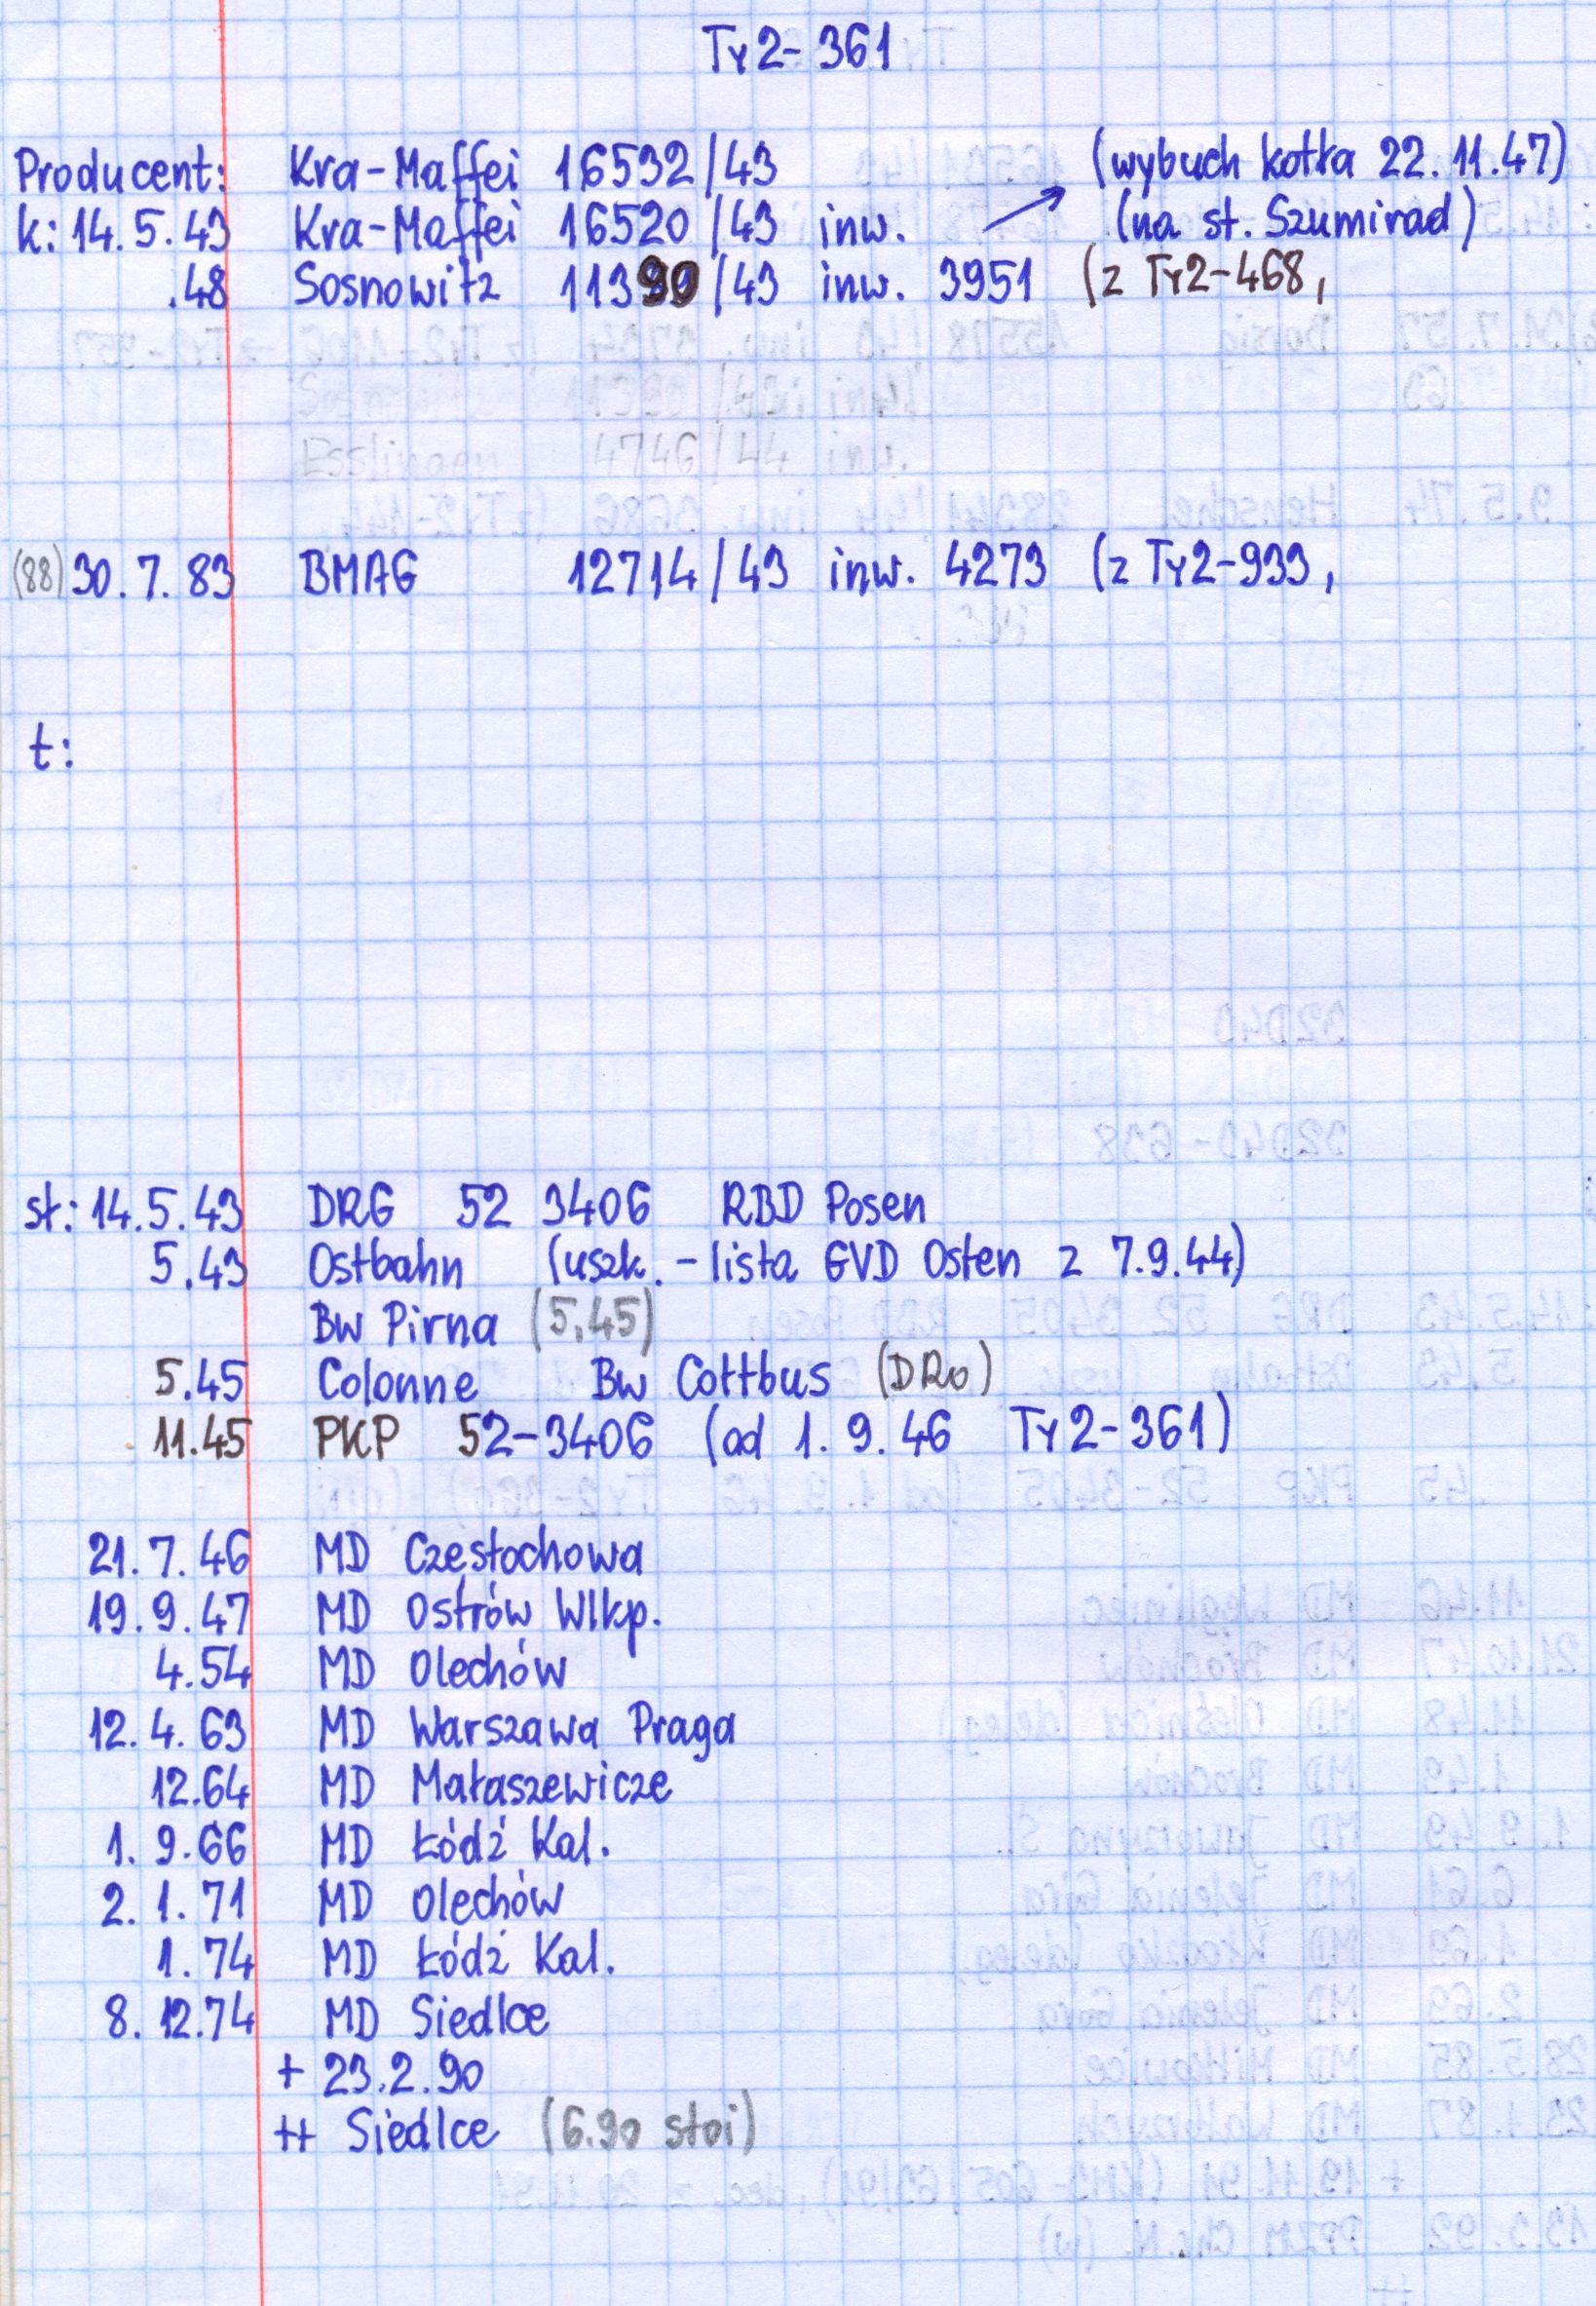 Ty2-361
Producent: Kra-Maffei 16532/43 (wybuch kotła 22.11.47)
k: 14.5.43 Kra-Maffei 16520/43 inw. (na st. Szumirad)
.48 Sosnowitz 11390/43 inw. 3951 (z Ty2-468,
(88) 30.7.83 BMAG 12714/43 inw. 4273 (z Ty2-933,
t:
st: 14.5.43 DRG 52 3406 RBD Posen
5.43 Ostbahn (uszk. - lista GVD Osten z 7.9.44)
Bw Pirna (5.45)
5.45 Colonne Bw Cottbus (DRo)
11.45 PKP 52-3406 (od 1.9.46 Ty2-361)
21.7.46 MD Częstochowa
19.9.47 MD Ostrów Wlkp.
4.54 MD Olechów
12.4.63 MD Warszawa Praga
12.64 MD Małaszewicze
1.9.66 MD Łódź Kal.
2.1.71 MD Olechów
1.74 MD Łódź Kal.
8.12.74 MD Siedlce
+ 23.2.90
++ Siedlce (6.90 stoi)